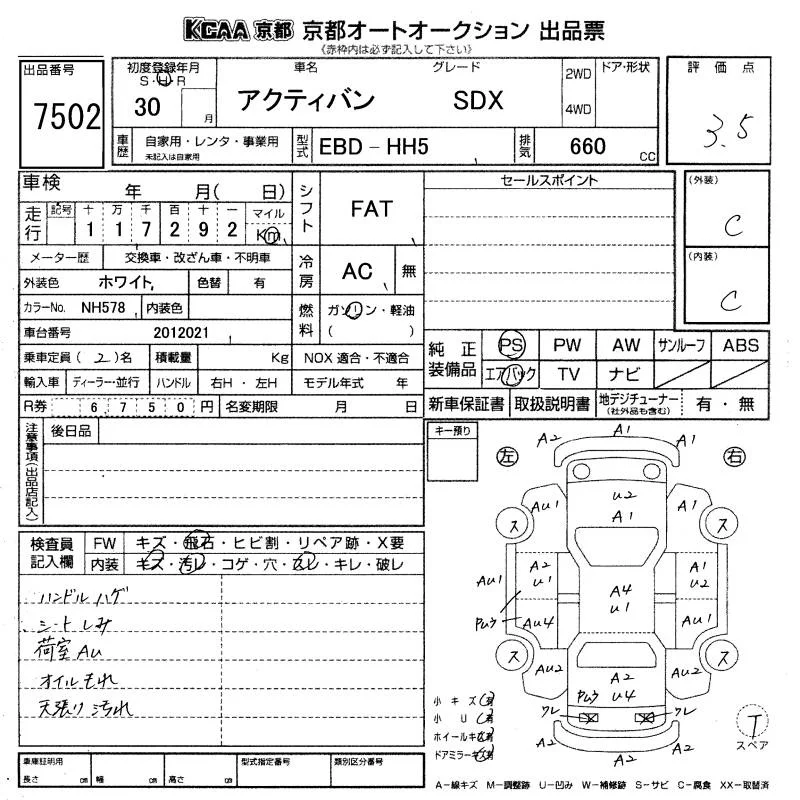 KCAA 京都 京都オートオークション 出品票
《赤枠内は必ず記入して下さい》
出品番号
7502
初度登録年月
S・H・R
30 月
車名
アクティバン
グレード
SDX
2WD
4WD
ドア・形状
評価点
3.5
車歴
自家用・レンタ・事業用
未記入は自家用
型式
EBD-HH5
排気
660 cc
車検 年 月( 日)
走行
記号 十 万 千 百 十 一 マイル
1 1 7 2 9 2 Km
メーター歴 交換車・改ざん車・不明車
外装色 ホワイト 色替 有
カラーNo. NH578 内装色
車台番号 2012021
乗車定員 (2)名 積載量 Kg
輸入車 ディーラー・並行 ハンドル 右H・左H
R券 6,750円 名変期限 月 日
シフト FAT
冷房 AC 無
燃料 ガソリン・軽油
( )
NOX 適合・不適合
モデル年式 年
セールスポイント
(外装)
C
(内装)
C
純正装備品
PS PW AW サンルーフ ABS
エアバック TV ナビ
新車保証書 取扱説明書 地デジチューナー(社外品も含む) 有・無
注意事項(出品店記入)
後日品
検査員記入欄
FW キズ・飛石・ヒビ割・リペア跡・X要
内装 キズ・汚レ・コゲ・穴・スレ・キレ・破レ
ハンドルハゲ
シートしみ
荷室AU
オイルもれ
天張り汚れ
車庫証明用
長さ cm 幅 cm 高さ cm
型式指定番号
類別区分番号
キー預り
左
右
A2 A1 A1
U2
A1
AU1 A1
ス ス
AU1
A2
U1
A4
U1
A1
U2
Pｕｳ AU4
AU1
ス ス
AU2 AU2
A2
Pｕｳ U4
ワレ ワレ
A2 A2
小キズ(有)
小U(有)
ホイールキズ(有)
ドアミラーキズ(有)
T
スペア
A-線キズ M-調整跡 U-凹み W-補修跡 S-サビ C-腐食 XX-取替済